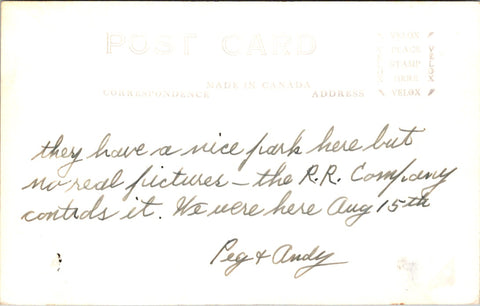 POST CARD
VELOX
PLACE
STAMP
HERE
VELOX
MADE IN CANADA
CORRESPONDENCE ADDRESS
they have a nice park here but
no real pictures — the R.R. Company
controls it. We were here Aug 15th
Peg & Andy